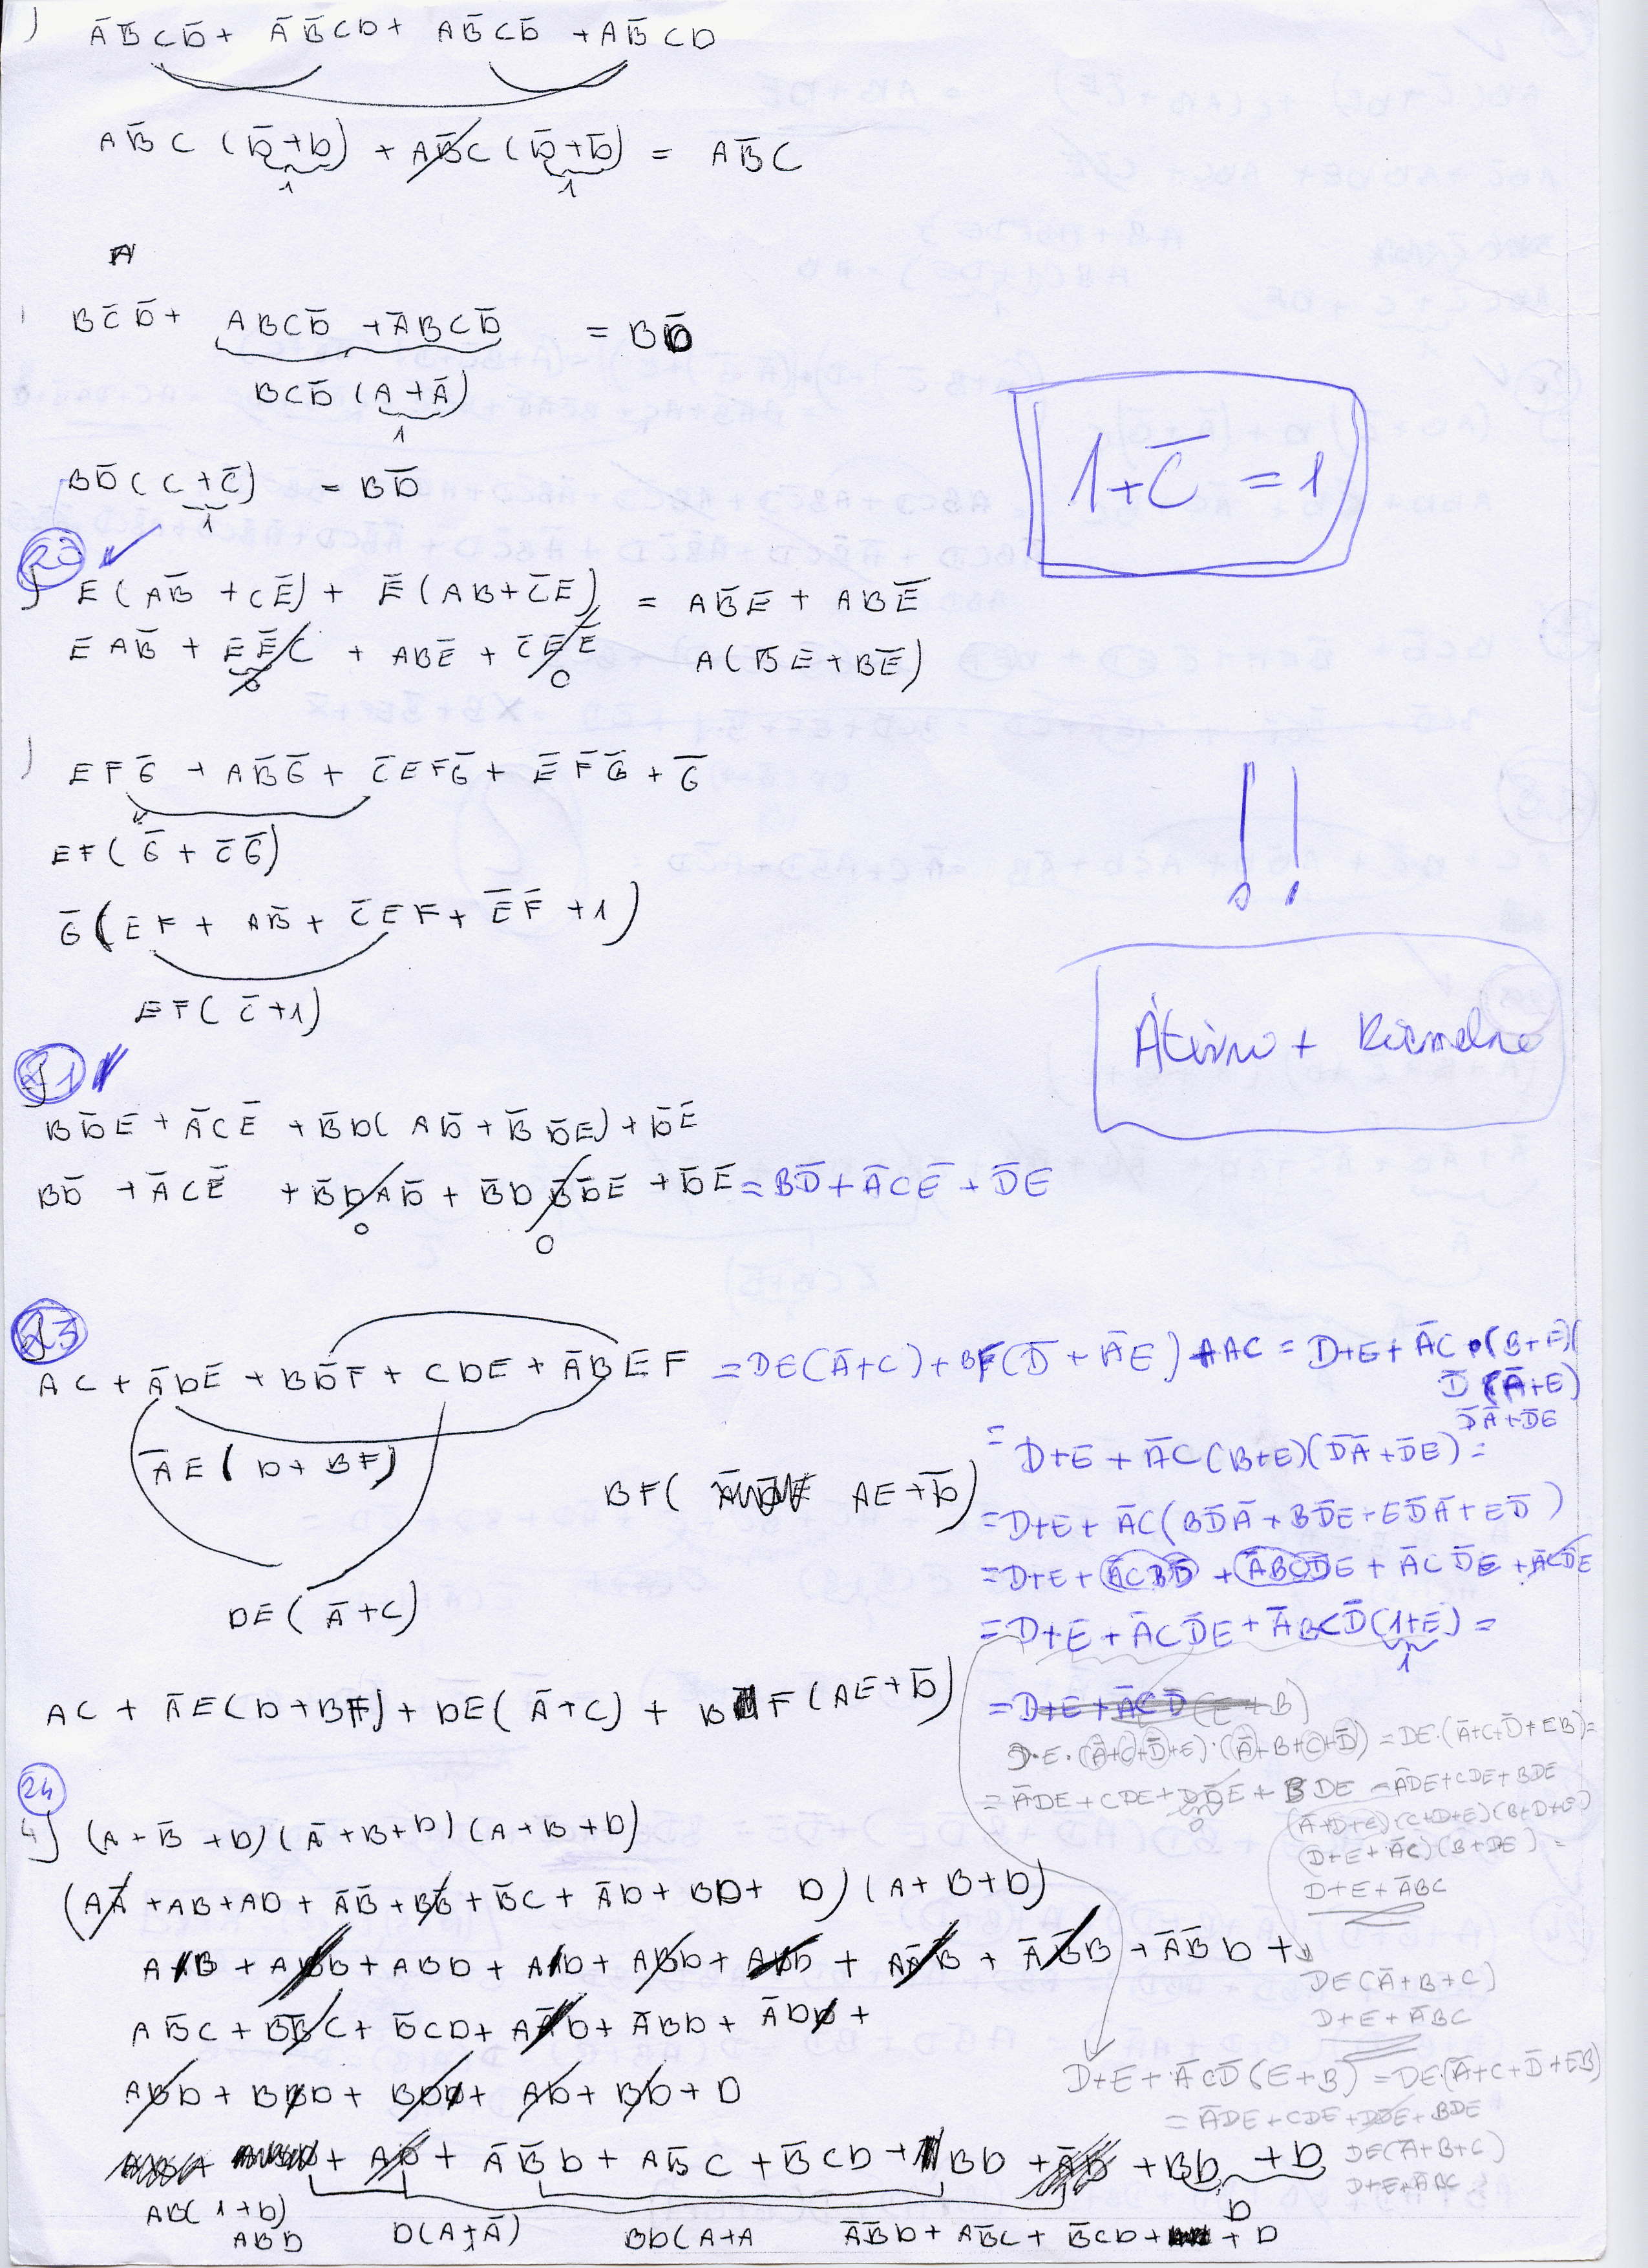 ) A̅B̅CD̅ + A̅B̅CD + AB̅CD̅ + AB̅CD
AB̅C (D̅+D) + AB̅C (D̅+D) = AB̅C
1 1
A
BC̅D̅ + ABCD̅ + A̅BCD̅ = BD̅
BCD̅ (A + A̅)
1
BD̅ (C + C̅) = BD̅
1
1 + C̅ = 1
) E(AB̅ + CE̅) + E̅(AB + C̅E) = AB̅E + ABE̅
EAB̅ + EE̅C + ABE̅ + C̅EE̅ A(B̅E + BE̅)
0 0
) EFG̅ + AB̅G̅ + C̅EFG̅ + E̅F̅G̅ + G̅
EF(G̅ + C̅G̅)
G̅(EF + AB̅ + C̅EF + E̅F̅ + 1)
EF(C̅+1)
!!
21
BD̅E + A̅CE̅ + B̅D(AD̅ + B̅D̅E) + D̅E
BD̅ + A̅CE̅ + B̅DAD̅ + B̅DB̅D̅E + D̅E = BD̅ + A̅CE̅ + D̅E
0
0
23
AC + A̅DE + BD̅F + CDE + A̅BEF = DE(A̅+C) + BF(D̅ + A̅E) + AAC = D+E + A̅C·(B+E)(
D̅(A̅+E)
D̅A̅+D̅E
A̅E(D + BF)
= D+E + A̅C(B+E)(D̅A̅ + D̅E) =
BF( AE + D̅)
= D+E + A̅C(BD̅A̅ + BD̅E + ED̅A̅ + ED̅)
= D+E + A̅CBD̅ + A̅BCD̅E + A̅CD̅E + A̅CD̅E
DE(A̅+C)
= D+E + A̅CD̅E + A̅BCD̅(1+E) =
1
AC + A̅E(D+BF) + DE(A̅+C) + BF(AE+D̅)
= D+E + A̅CD̅(E+B)
D·E·(A̅+C+D̅+E)·(A̅+B+C+D̅) = DE·(A̅+C+D̅+EB) =
= A̅DE + CDE + DD̅E + BDE = A̅DE+CDE+BDE
0
(A̅+D+E)(C+D+E)(B+D+E)
(D+E+A̅C)(B+DE) =
D+E+A̅BC
24
4) (A + B̅ + D)(A̅ + B + D)(A + B + D)
(AA̅ + AB + AD + A̅B̅ + BB̅ + B̅C + A̅D + BD + D)(A + B + D)
AAB + ABB + ABD + AAD + ABD + ADD + AA̅B̅ + A̅B̅B + A̅B̅D +
AB̅C + BB̅C + B̅CD + AA̅D + A̅BD + A̅DD +
ABD + BBD + BDD + AD + BD + D
DE(A̅+B+C)
D+E+A̅BC
D+E + A̅CD̅(E+B) = DE·(A̅+C+D̅+EB)
= A̅DE + CDE + DD̅E + BDE
DE(A̅+B+C)
D+E+A̅BC
+ AD + A̅B̅D + AB̅C + B̅CD + BD + A̅D + BD + D
D
AB(1+D)
ABD D(A+A̅) BD(A+A A̅B̅D + AB̅C + B̅CD + + D